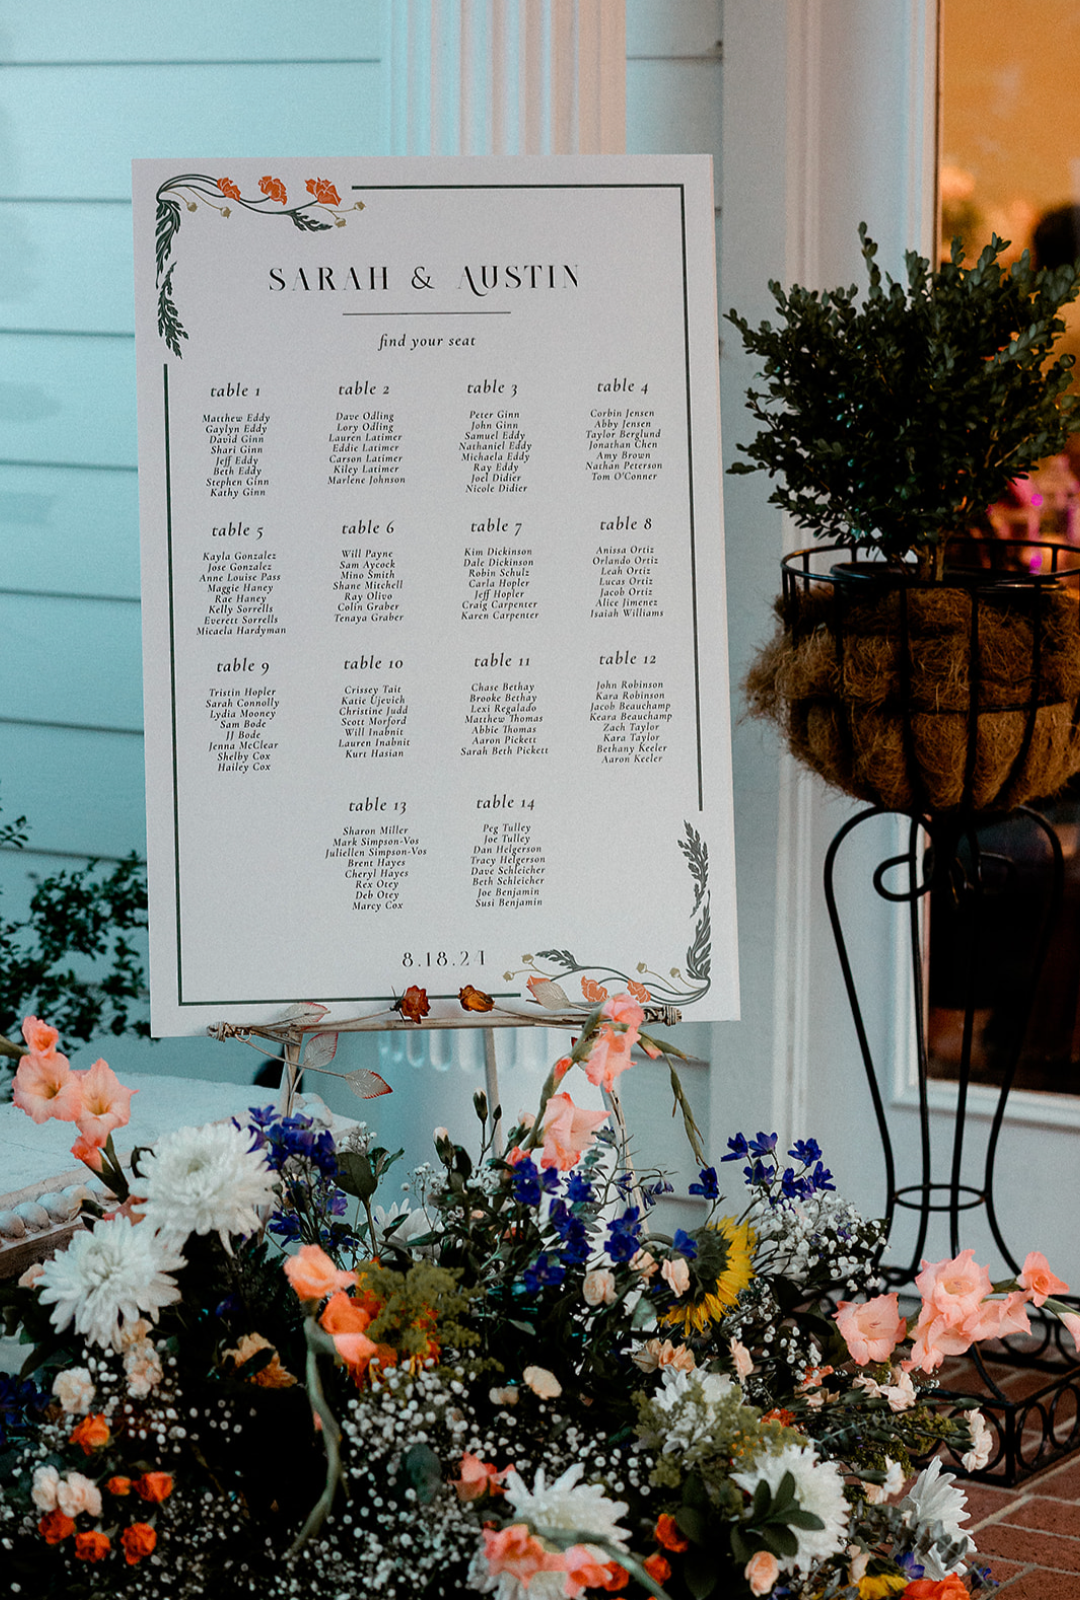 SARAH & AUSTIN
find your seat
table 1
Matthew Eddy
Gaylyn Eddy
David Ginn
Shari Ginn
Jeff Eddy
Beth Eddy
Stephen Ginn
Kathy Ginn
table 2
Dave Odling
Lory Odling
Lauren Latimer
Eddie Latimer
Carson Latimer
Kiley Latimer
Marlene Johnson
table 3
Peter Ginn
John Ginn
Samuel Eddy
Nathaniel Eddy
Michaela Eddy
Ray Eddy
Joel Didier
Nicole Didier
table 4
Corbin Jensen
Abby Jensen
Taylor Berglund
Jonathan Chen
Amy Brown
Nathan Peterson
Tom O'Conner
table 5
Kayla Gonzalez
Jose Gonzalez
Anne Louise Pass
Maggie Haney
Rae Haney
Kelly Sorrells
Everett Sorrells
Micaela Hardyman
table 6
Will Payne
Sam Aycock
Mino Smith
Shane Mitchell
Ray Olivo
Colin Graber
Tenaya Graber
table 7
Kim Dickinson
Dale Dickinson
Robin Schulz
Carla Hopler
Jeff Hopler
Craig Carpenter
Karen Carpenter
table 8
Anissa Ortiz
Orlando Ortiz
Leah Ortiz
Lucas Ortiz
Jacob Ortiz
Alice Jimenez
Isaiah Williams
table 9
Tristin Hopler
Sarah Connolly
Lydia Mooney
Sam Bode
JJ Bode
Jenna McClear
Shelby Cox
Hailey Cox
table 10
Crissey Tait
Katie Ujevich
Christine Judd
Scott Morford
Will Inabnit
Lauren Inabnit
Kurt Hasian
table 11
Chase Bethay
Brooke Bethay
Lexi Regalado
Matthew Thomas
Abbie Thomas
Aaron Pickett
Sarah Beth Pickett
table 12
John Robinson
Kara Robinson
Jacob Beauchamp
Keara Beauchamp
Zach Taylor
Kara Taylor
Bethany Keeler
Aaron Keeler
table 13
Sharon Miller
Mark Simpson-Vos
Juliellen Simpson-Vos
Brent Hayes
Cheryl Hayes
Rex Otey
Deb Otey
Marcy Cox
table 14
Peg Tulley
Joe Tulley
Dan Helgerson
Tracy Helgerson
Dave Schleicher
Beth Schleicher
Joe Benjamin
Susi Benjamin
8.18.24